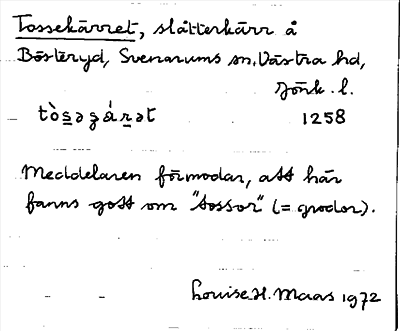 Tossekärret, slåtterkärr å
Bösteryd, Svenarums sn, Västra hd,
Jönk. l.
tòsəʒárət 1258
Meddelaren förmodar, att här
fanns gott om "tossor" (= grodor).
Louise H. Maas 1972